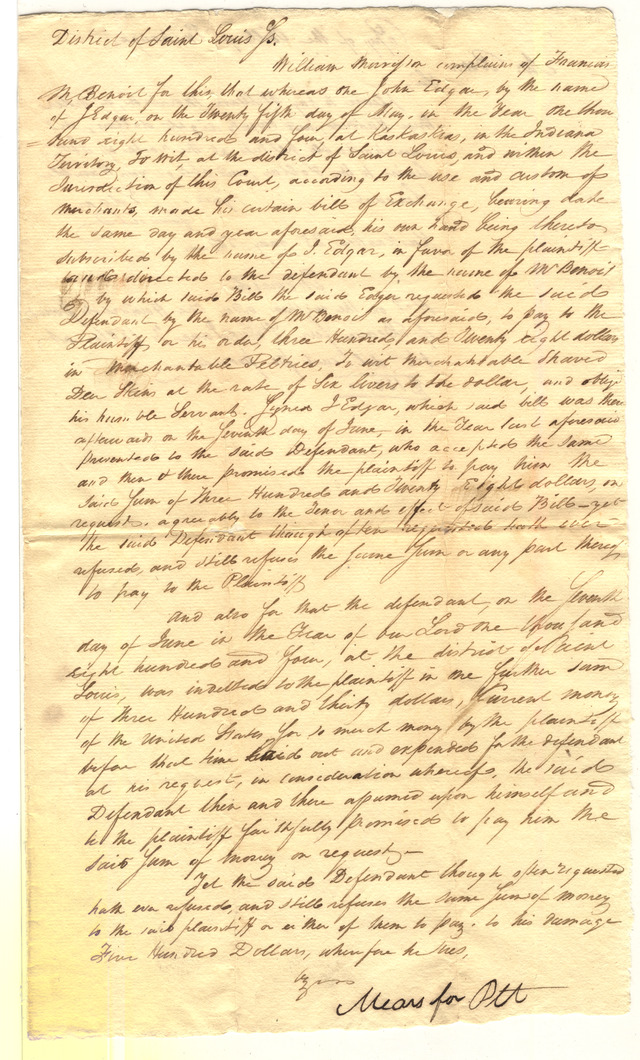 District of Saint Louis Ss.
William Morrison complains of Francois
M. Benoit for this that whereas one John Edgar, by the name
of J Edgar, on the Twenty fifth day of May, in the Year one thou
=sand eight hundred and four at Kaskaskias, in the Indiana
Territory, To wit at the district of Saint Louis, and within the
Jurisdiction of this Court, according to the use and custom of
merchants, made his certain bill of Exchange, bearing date
the same day and year aforesaid, his own hand being thereto
subscribed by the name of J. Edgar, in favor of the plaintiff
and directed to the defendant by the name of Mr Benoit
by which said Bill the said Edgar requested the said
Defendant by the name of Mr Benoit as aforesaid, to pay to the
Plaintiff or his order, three Hundred and Twenty eight dollars
in merchantable Peltries, To wit merchantable Shaved
Deer Skins at the rate of Six livers to the dollar, and oblige
his humble Servant. Signed J Edgar, which said bill was then
afterwards on the Seventh day of June, in the Year last aforesaid
presented to the said Defendant, who accepted the same
and then & there promised the plaintiff to pay him the
said Sum of Three Hundred and Twenty Eight dollars, on
request, agreeably to the Tenor and effect of said Bill – yet
the said Defendant though often requested hath ever
refused, and still refuses the same Sum or any part thereof
to pay to the Plaintiff
And also for that the defendant, on the Seventh
day of June in the Year of our Lord one thousand
eight hundred and four, at the district of Saint
Louis, was indebted to the plaintiff in one further sum
of three Hundred and thirty dollars, Current money
of the United States, for so much money by the plaintiff
before that time laid out and expended for the defendant
at his request, in consideration whereof, the said
Defendant then and there assumed upon himself and
to the plaintiff faithfully promised to pay him the
said Sum of money on request –
Yet the said Defendant though often requested
hath ever refused, and still refuses the same Sum of money
to the said plaintiff or either of them to pay. to his damage
Five Hundred Dollars, wherefore he sues,
Mears for Ptt